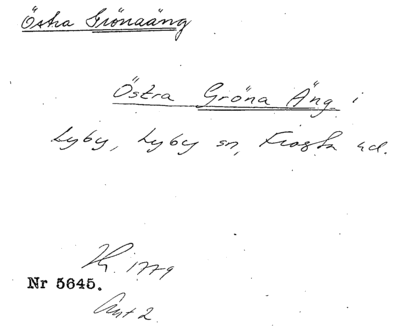 Östra Grönaäng
Östra Gröna Äng i
Lyby, Lyby sn, Frosta hd.
1779
Nr 5645.
Akt 2